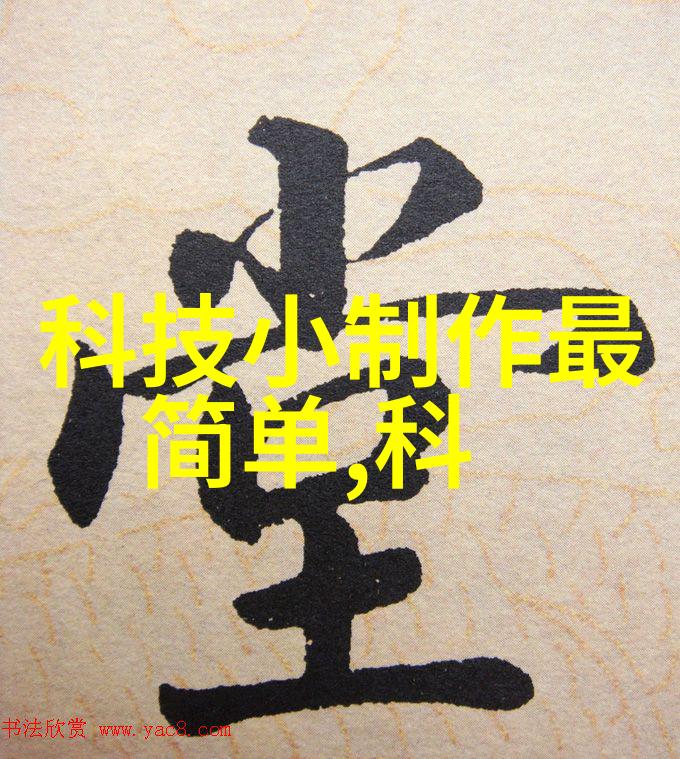 堂
科技小制作最
简单,科
书法欣赏 www.yac8.com